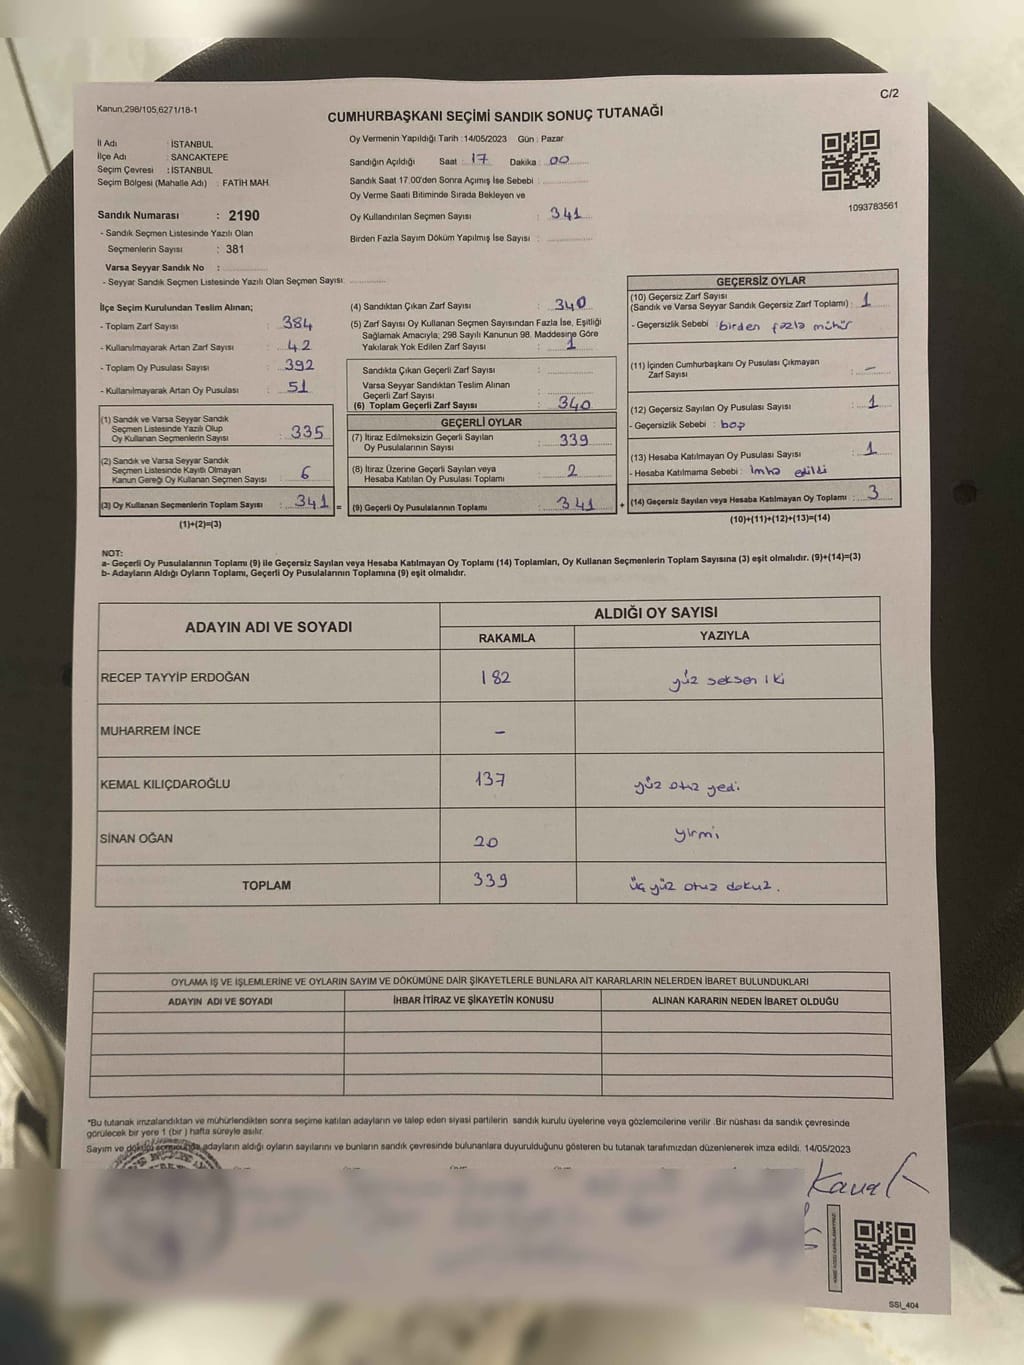 Kanun;298/105,6271/18-1
C/2
CUMHURBAŞKANI SEÇİMİ SANDIK SONUÇ TUTANAĞI
İl Adı : İSTANBUL
İlçe Adı : SANCAKTEPE
Seçim Çevresi : İSTANBUL
Seçim Bölgesi (Mahalle Adı) : FATİH MAH.
Sandık Numarası : 2190
- Sandık Seçmen Listesinde Yazılı Olan
Seçmenlerin Sayısı : 381
Varsa Seyyar Sandık No :
- Seyyar Sandık Seçmen Listesinde Yazılı Olan Seçmen Sayısı:
Oy Vermenin Yapıldığı Tarih :14/05/2023 Gün : Pazar
Sandığın Açıldığı Saat : 17 Dakika : 00
Sandık Saat 17.00'den Sonra Açımış İse Sebebi :
Oy Verme Saati Bitiminde Sırada Bekleyen ve
Oy Kullandırılan Seçmen Sayısı : 341
Birden Fazla Sayım Döküm Yapılmış İse Sayısı :
1093783561
İlçe Seçim Kurulundan Teslim Alınan;
- Toplam Zarf Sayısı : 384
- Kullanılmayarak Artan Zarf Sayısı : 42
- Toplam Oy Pusulası Sayısı : 392
- Kullanılmayarak Artan Oy Pusulası : 51
(1) Sandık ve Varsa Seyyar Sandık
Seçmen Listesinde Yazılı Olup
Oy Kullanan Seçmenlerin Sayısı : 335
(2) Sandık ve Varsa Seyyar Sandık
Seçmen Listesinde Kayıtlı Olmayan
Kanun Gereği Oy Kullanan Seçmen Sayısı : 6
(3) Oy Kullanan Seçmenlerin Toplam Sayısı : 341 =
(1)+(2)=(3)
(4) Sandıktan Çıkan Zarf Sayısı : 340
(5) Zarf Sayısı Oy Kullanan Seçmen Sayısından Fazla İse, Eşitliği
Sağlamak Amacıyla; 298 Sayılı Kanunun 98. Maddesine Göre
Yakılarak Yok Edilen Zarf Sayısı : 1
Sandıkta Çıkan Geçerli Zarf Sayısı :
Varsa Seyyar Sandıktan Teslim Alınan
Geçerli Zarf Sayısı :
(6) Toplam Geçerli Zarf Sayısı : 340
GEÇERLİ OYLAR
(7) İtiraz Edilmeksizin Geçerli Sayılan
Oy Pusulalarının Sayısı : 339
(8) İtiraz Üzerine Geçerli Sayılan veya
Hesaba Katılan Oy Pusulası Toplamı : 2
(9) Geçerli Oy Pusulalarının Toplamı : 341 +
GEÇERSİZ OYLAR
(10) Geçersiz Zarf Sayısı
(Sandık ve Varsa Seyyar Sandık Geçersiz Zarf Toplamı) : 1
- Geçersizlik Sebebi : birden fazla mühür
(11) İçinden Cumhurbaşkanı Oy Pusulası Çıkmayan
Zarf Sayısı : -
(12) Geçersiz Sayılan Oy Pusulası Sayısı : 1
- Geçersizlik Sebebi : boş
(13) Hesaba Katılmayan Oy Pusulası Sayısı : 1
- Hesaba Katılmama Sebebi : İmha edildi
(14) Geçersiz Sayılan veya Hesaba Katılmayan Oy Toplamı : 3
(10)+(11)+(12)+(13)=(14)
NOT:
a- Geçerli Oy Pusulalarının Toplamı (9) ile Geçersiz Sayılan veya Hesaba Katılmayan Oy Toplamı (14) Toplamları, Oy Kullanan Seçmenlerin Toplam Sayısına (3) eşit olmalıdır. (9)+(14)=(3)
b- Adayların Aldığı Oyların Toplamı, Geçerli Oy Pusulalarının Toplamına (9) eşit olmalıdır.
ADAYIN ADI VE SOYADI
ALDIĞI OY SAYISI
RAKAMLA YAZIYLA
RECEP TAYYİP ERDOĞAN 182 yüz seksen iki
MUHARREM İNCE -
KEMAL KILIÇDAROĞLU 137 yüz otuz yedi
SİNAN OĞAN 20 yirmi
TOPLAM 339 üç yüz otuz dokuz.
OYLAMA İŞ VE İŞLEMLERİNE VE OYLARIN SAYIM VE DÖKÜMÜNE DAİR ŞİKAYETLERLE BUNLARA AİT KARARLARIN NELERDEN İBARET BULUNDUKLARI
ADAYIN ADI VE SOYADI İHBAR İTİRAZ VE ŞİKAYETİN KONUSU ALINAN KARARIN NEDEN İBARET OLDUĞU
*Bu tutanak imzalandıktan ve mühürlendikten sonra seçime katılan adayların ve talep eden siyasi partilerin sandık kurulu üyelerine veya gözlemcilerine verilir .Bir nüshası da sandık çevresinde
görülecek bir yere 1 (bir ) hafta süreyle asılır.
Sayım ve döküm sonucunda adayların aldığı oyların sayılarını ve bunların sandık çevresinde bulunanlara duyurulduğunu gösteren bu tutanak tarafımızdan düzenlenerek imza edildi. 14/05/2023
SSI_404